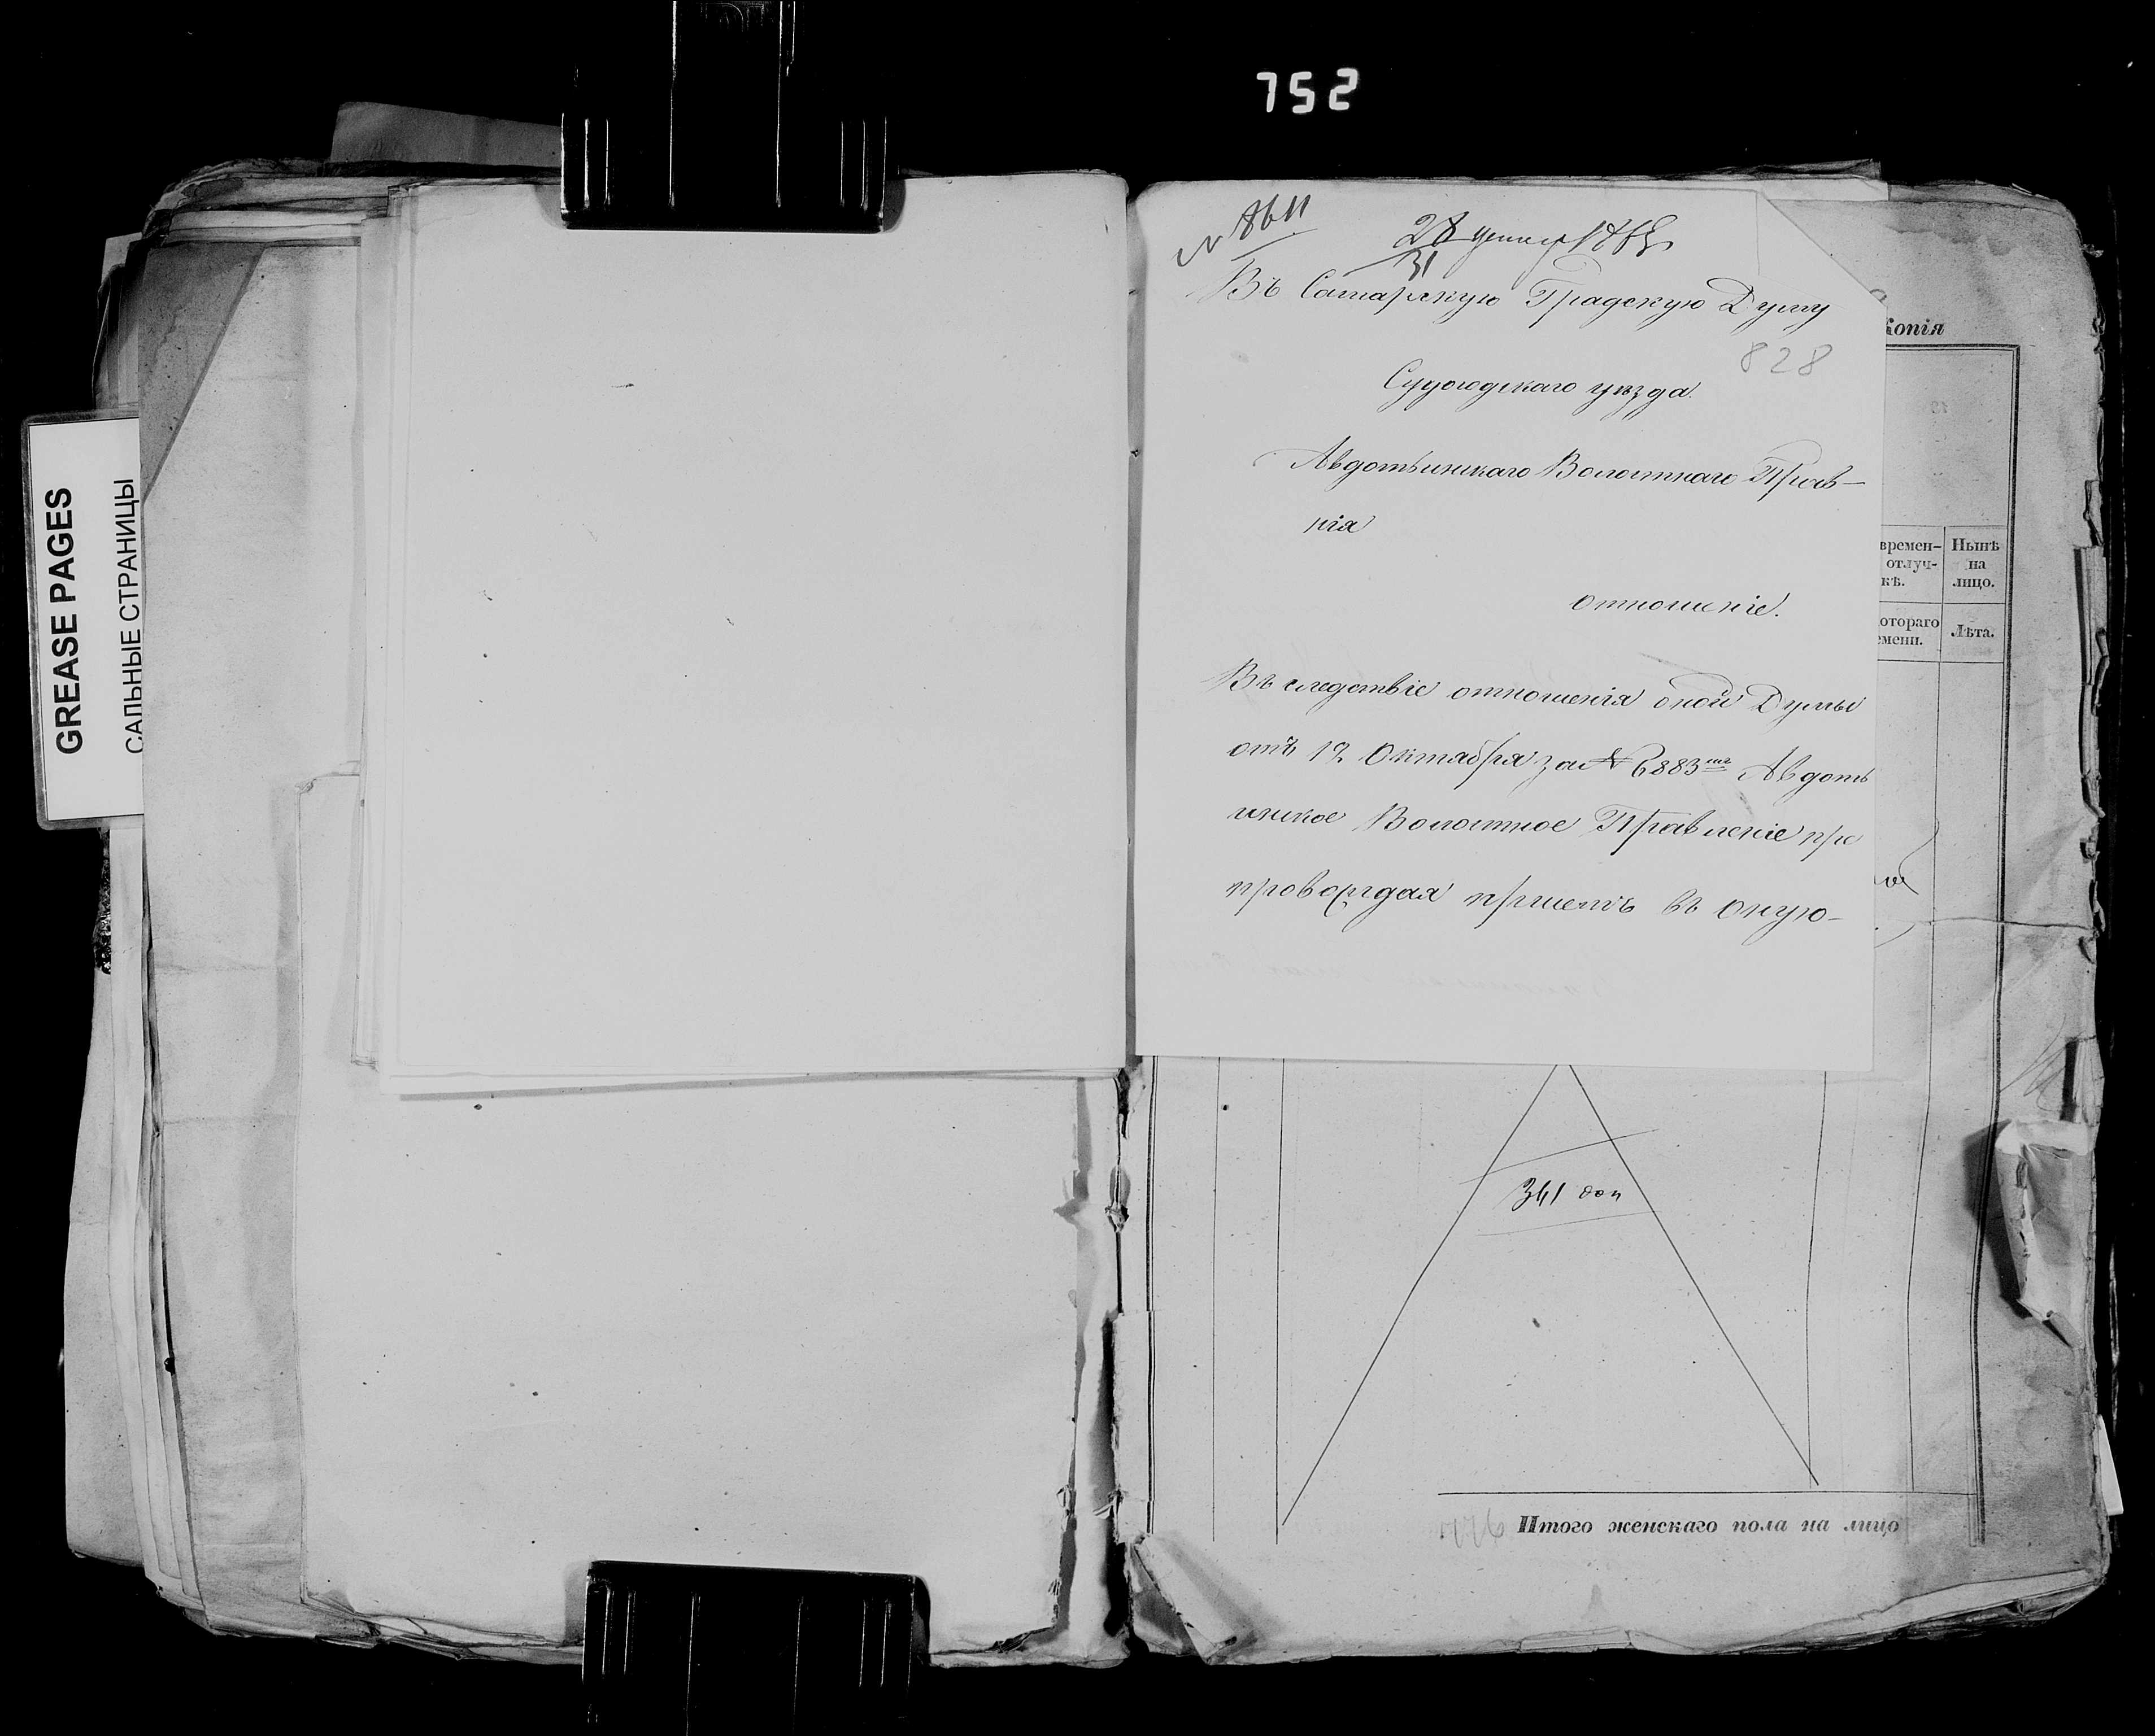 752
GREASE PAGES
САЛЬНЫЕ СТРАНИЦЫ
№ 8611
28
31
Въ Самарскую Градскую Думу
828
Судогодскаго уѣзда.
Авдотьинскаго Волостнаго Прав-
нія
отношеніе.
Въ следствіе отношенія оной Думы
отъ 12 Октября за № 6883 Авдоть
инское Волостное Правленіе пре
провождая при семъ въ оную-
Копія
времен-
отлуч-
кѣ.
Нынѣ
на
лицо.
отораго
емени.
Лѣта.
341 доп
Итого женскаго пола на лицо